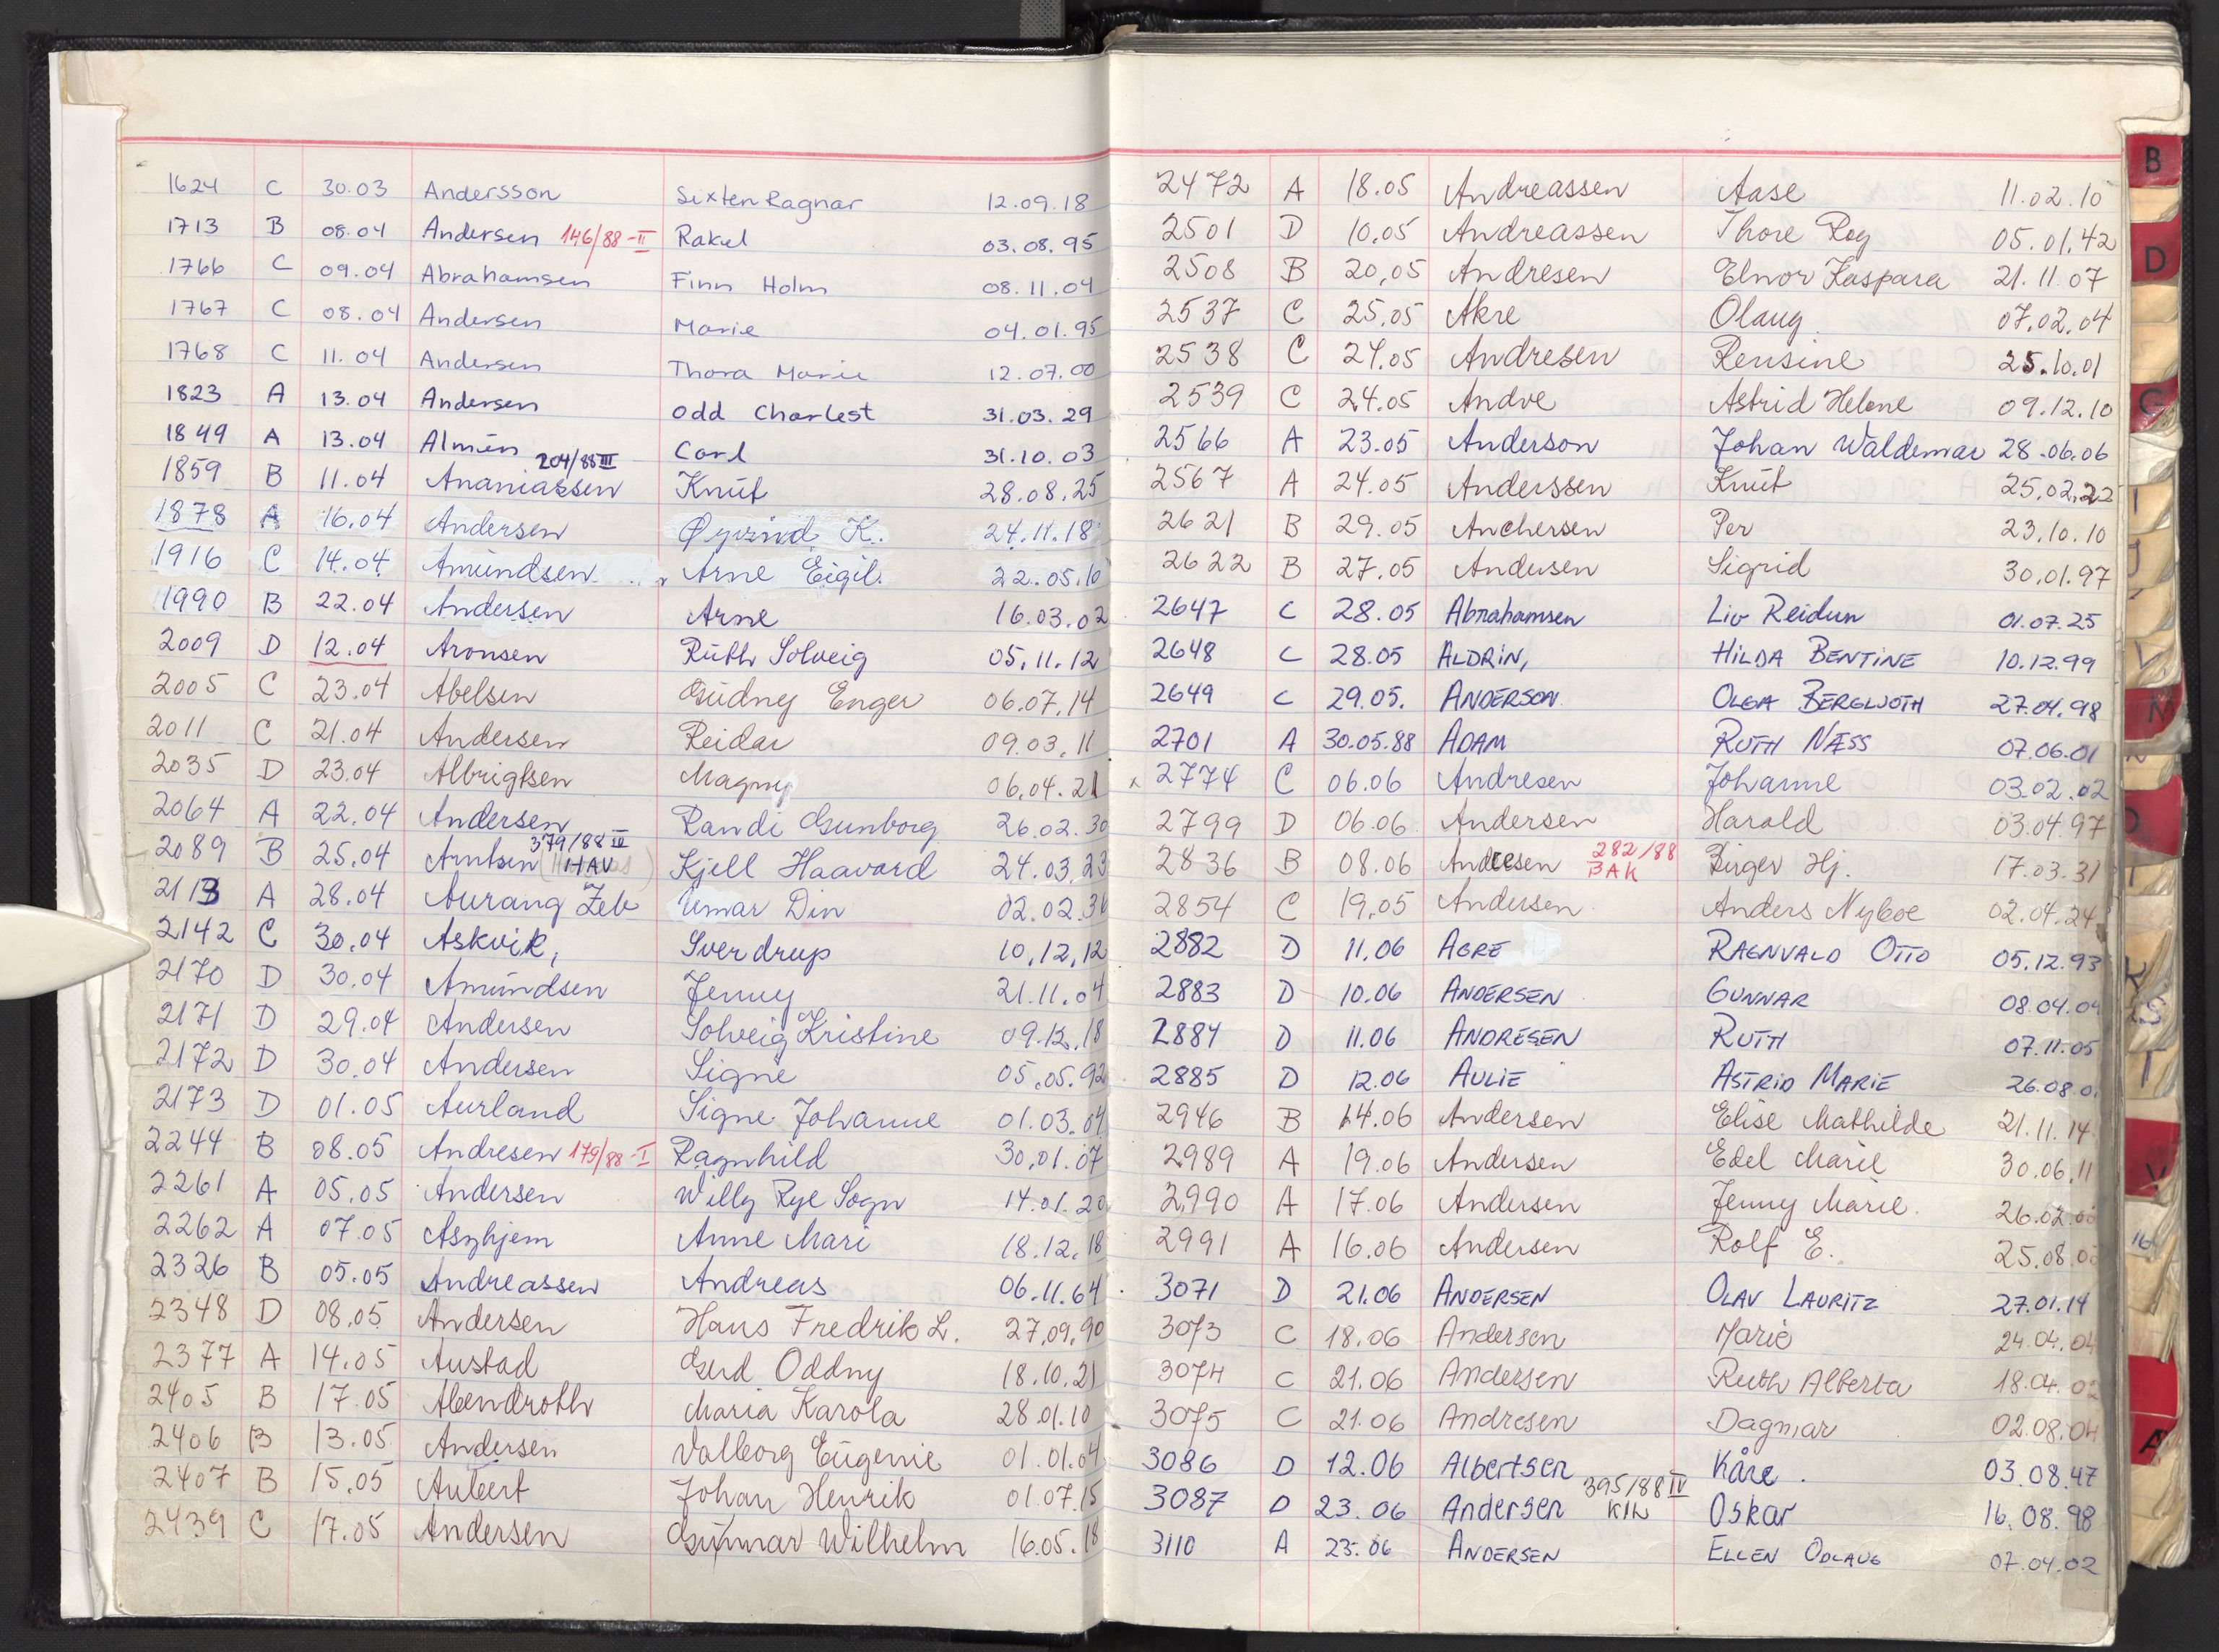 1624 C 30.03 Andersson Sixten Ragnar 12.09.18
1713 B 08.04 Andersen 146/88-II Rakel 03.08.95
1766 C 09.04 Abrahamsen Finn Holm 08.11.04
1767 C 08.04 Andersen Marie 04.01.95
1768 C 11.04 Andersen Thora Marie 12.07.00
1823 A 13.04 Andersen Odd Charlest 31.03.29
1849 A 13.04 Almén Carl 31.10.03
1859 B 11.04 Ananiassen 204/88 III Knut 28.08.25
1878 A 16.04 Andersen Øyvind K. 24.11.18
1916 C 14.04 Amundsen Arne Eigil. 22.05.10
1990 B 22.04 Andersen Arne 16.03.02
2009 D 12.04 Aronsen Ruth Solveig 05.11.12
2005 C 23.04 Abelsen Gudny Enger 06.07.14
2011 C 21.04 Andersen Reidar 09.03.11
2035 D 23.04 Albrigtsen Magny 06.04.21
2064 A 22.04 Andersen Randi Gunborg 26.02.30
2089 B 25.04 Arntsen 379/88 IV HAV Kjell Haavard 24.03.23
2113 A 28.04 Aurang Zeb Umar Din 02.02.
2142 C 30.04 Askvik, Sverdrup 10.12.12
2170 D 30.04 Amundsen Jenny 21.11.04
2171 D 29.04 Andersen Solveig Kristine 09.12.18
2172 D 30.04 Andersen Signe 05.05.92
2173 D 01.05 Aurland Signe Johanne 01.03.01
2244 B 08.05 Andresen 179/88-I Ragnhild 30.01.07
2261 A 05.05 Andersen Willy Rye Sogn 14.01.20
2262 A 07.05 Asphjem Anne Mari 18.12.18
2326 B 05.05 Andreassen Andreas 06.11.64
2348 D 08.05 Andersen Hans Fredrik L. 27.09.90
2377 A 14.05 Austad Gerd Oddny 18.10.21
2405 B 17.05 Abendroth Maria Karola 28.01.10
2406 B 13.05 Andersen Valborg Eugenie 01.01.04
2407 B 15.05 Aubert Johan Henrik 01.07.15
2439 C 17.05 Andersen Gunnar Wilhelm 16.05.18
2472 A 18.05 Andreassen Aase 11.02.10
2501 D 10.05 Andreassen Thore Roy 05.01.42
2508 B 20.05 Andresen Elnor Kaspara 21.11.07
2537 C 25.05 Akre Olaug 07.02.04
2538 C 24.05 Andresen Rensine 25.10.01
2539 C 24.05 Andve Astrid Helene 09.12.10
2566 A 23.05 Anderson Johan Waldemar 28.06.06
2567 A 24.05 Anderssen Knut 25.02.22
2621 B 29.05 Anchersen Per 23.10.10
2622 B 27.05 Andersen Sigrid 30.01.97
2647 C 28.05 Abrahamsen Liv Reidun 01.07.25
2648 C 28.05 ALDRIN, HILDA BENTINE 10.12.99
2649 C 29.05. ANDERSON OLGA BERGLJOTH 27.04.98
2701 A 30.05.88 ADAM RUTH NÆSS 07.06.01
x 2774 C 06.06 Andresen Johanne 03.02.02
2799 D 06.06 Andersen Harald 03.04.97
2836 B 08.06 Andresen 282/88 BAK Birger Hj. 17.03.31
2854 C 19.05 Andersen Anders Nyboe 02.04.24
2882 D 11.06 AGRE RAGNVALD OTTO 05.12.93
2883 D 10.06 ANDERSEN GUNNAR 08.04.04
2884 D 11.06 ANDRESEN RUTH 07.11.05
2885 D 12.06 AULIE ASTRID MARIE 26.08.0
2946 B 14.06 Andersen Elise Mathilde 21.11.14
2989 A 19.06 Andersen Edel Marie 30.06.11
2990 A 17.06 Andersen Jenny Marie. 26.02.
2991 A 16.06 Andersen Rolf E. 25.08.
3071 D 21.06 ANDERSEN OLAV LAURITZ 27.01.14
3073 C 18.06 Andersen Marie 24.04.04
3074 C 21.06 Andersen Ruth Alberta 18.04.02
3075 C 21.06 Andresen Dagmar 02.08.04
3086 D 12.06 Albertsen Kåre. 03.08.47
3087 D 23.06 Andersen 395/88 IV KIL Oskar 16.08.98
3110 A 23.06 ANDERSEN ELLEN ODLAUG 07.04.02
B
D
G
I
J
V
N
O
T
K
S
T
V
16
A